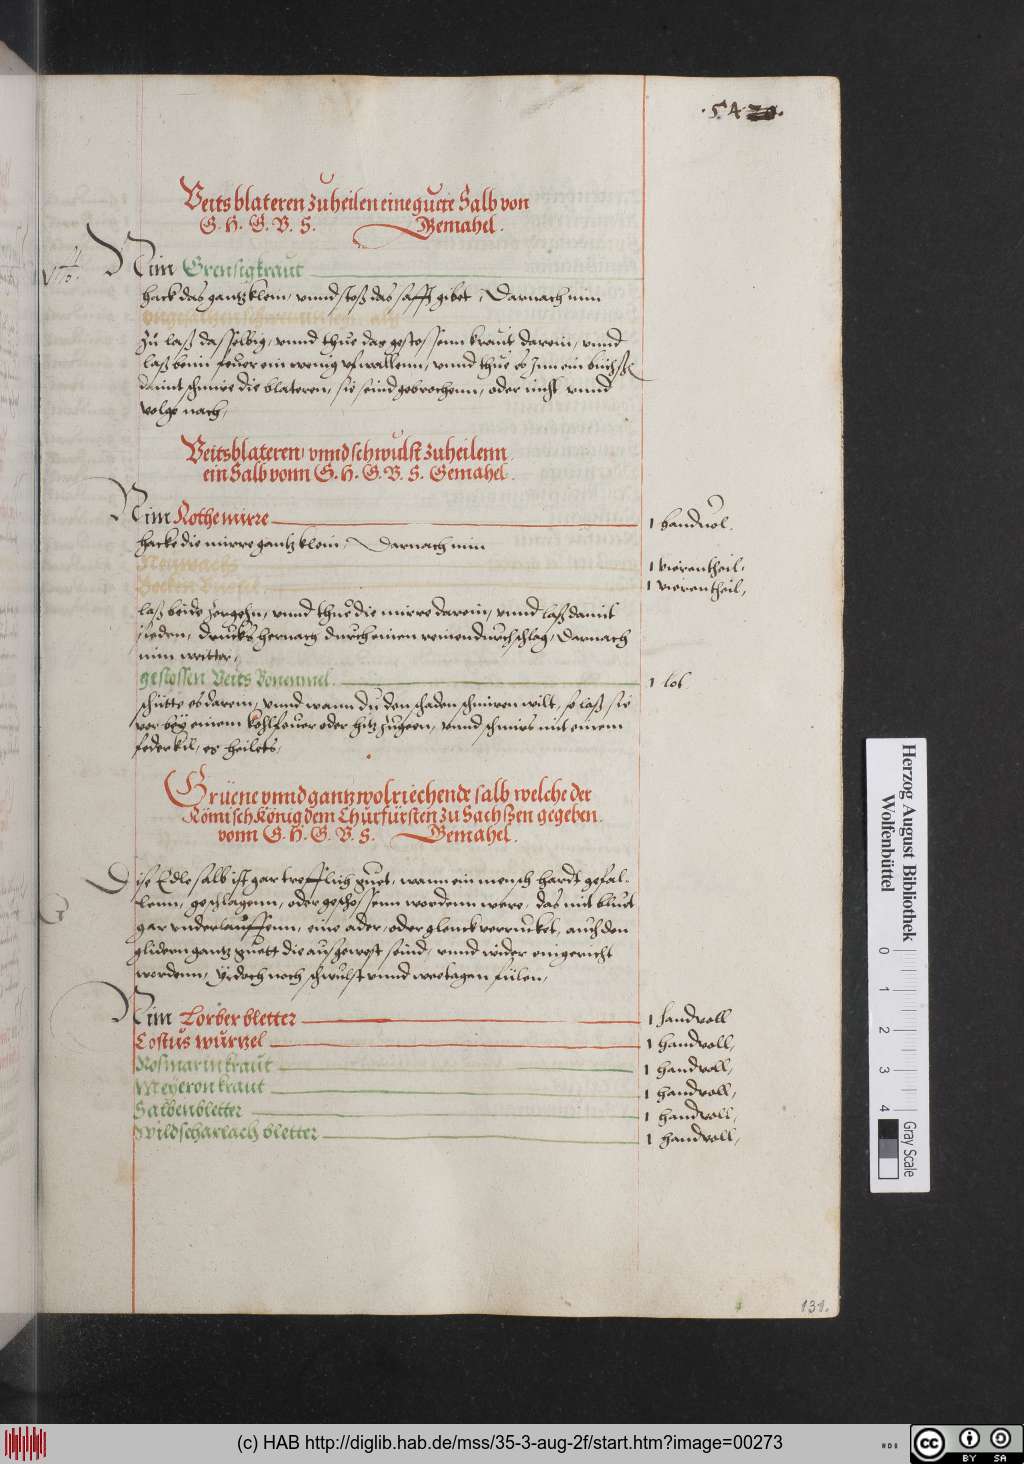 .5.4
Veitsblateren zuheilen eine guete Salb von
G. H. G. B. S. Gemahel.
Nim Grensigkraut
hack das gantz klein, vnnd stoß das safft gibet, Darnach nim
zu laß dasselbig, vnnd thue das gestossenn kraut darein, vnnd
laß beim feuer ein wenig vfwallenn, vnnd thue es Inn ein büchßle
damit schmire die blateren, sie seind gebrochenn, oder nicht vnnd
volge nach,
Veitsblateren, vnnd schwulst zuheilenn
ein Salb vonn G. H. G. B. S. Gemahel.
Nim Rothe mirre 1 handuol.
hacke die mirre gantz klein, Darnach nim
Neuwachs 1 vierentheil,
1 vierentheil,
laß beide zergehn, vnnd thue die mirre darein, vnnd laß damit
sieden, drucks hernach durch einen reinen durchschlag, Darnach
nim weitter,
gestossen Veits Bonenmel. 1 lot
schütte es darein, vnnd wann du den schaden schmiren wilt, so laß sie
vor bey einem kohlfeuer oder hitz zugeen, vnnd schmirs mit einem
federkil, es heilets,
Grüene vnnd gantz wolriechende salb welche der
Römisch König dem Churfürsten zu Sachßen gegeben.
vonn G. H. G. B. S. Gemahel.
Dise Edle salb ist gar trefflich guet, wann ein mensch hardt gefal-
lenn, geschlagenn, oder geschossenn wordenn were, das mit bluet
gar vnderlauffenn, eine ader, oder glenck verrucket, auch den
glidern gantz guett die außgewest seind, vnnd wider eingericht
wordenn, Yedoch noch schwulst vnnd weetagen fülen,
Nim Lorber bletter 1 handvoll
Costus wurtzel 1 handvoll,
Rosmarin kraut 1 handvoll,
Meyeron kraut 1 handvoll,
Salbenbletter 1 handvoll,
Wildscharlach bletter 1 handvoll,
131.
Herzog August Bibliothek
Wolfenbüttel
0 1 2 3 4
Gray Scale
(c) HAB http://diglib.hab.de/mss/35-3-aug-2f/start.htm?image=00273
cc BY SA